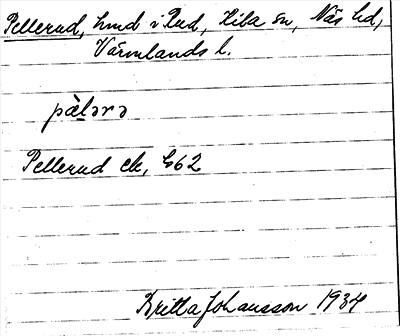 Pellerud, hmd i Rud, Kila sn, Näs hd,
Värmlands l.
pàlərə
Pellerud ek, G62
Britta Johansson 1934